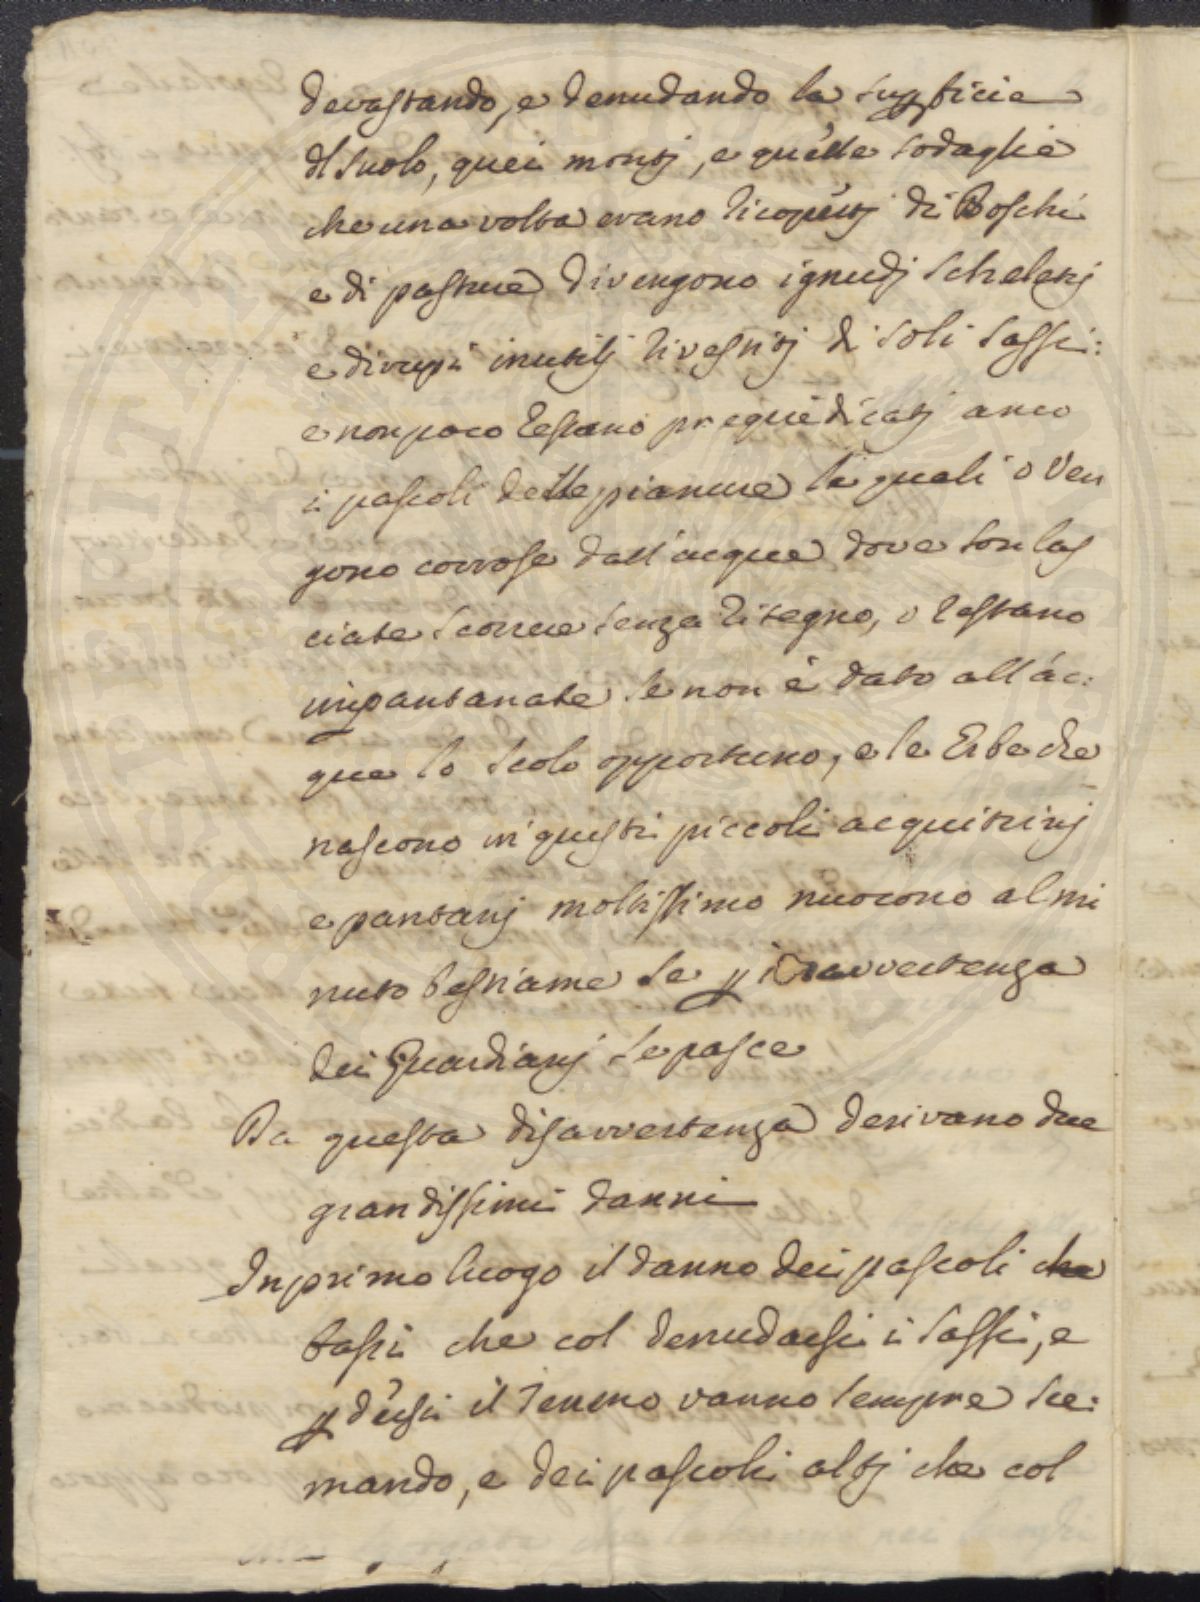 devastando, e denudando la supficie
dl suolo, quei montj, e quelle sodaglie
che una volta erano ricopertj di Boschi
e di pasture divengono ignudj scheletrj
e dirupi inutilj rivestitj di soli sassi:
e non poco restano pregiudicatj anco
i pascoli delle pianure le quali o ven
gono corrose dall'acque dove son las
ciate scorrere senza ritegno, o restano
impantanate se non è dato all'ac:
que lo scolo opportuno, e le Erbe che
nascono in questi piccoli acquitrinj
e pantanj moltissimo nuocono al mi
nuto bestiame se p inavvertenza
dei Guardianj se pasce
Da questa disavvertenza derivano due
grandissimi danni
In primo luogo il danno dei pascoli che
bassi che col denudarsi i sassi, e
pdersi il terreno vanno sempre sce:
mando, e dei pascoli altj che col